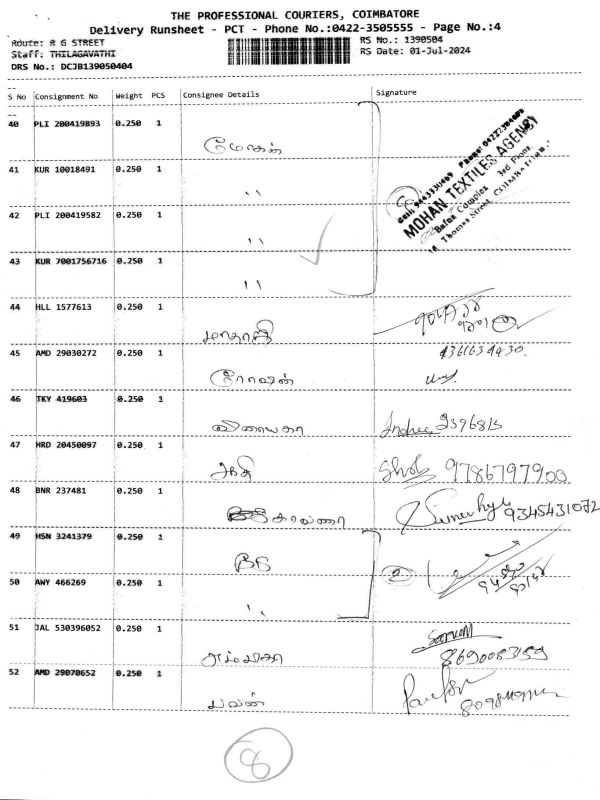 THE PROFESSIONAL COURIERS, COIMBATORE
Delivery Runsheet - PCT - Phone No.:0422-3505555 - Page No.:4
Route: R G STREET
Staff: THILAGAVATHI
DRS No.: DCJB139050404
RS No.: 1390504
RS Date: 01-Jul-2024
S No Consignment No Weight PCS Consignee Details Signature
40 PLI 200419893 0.250 1
மோகன்
MOHAN TEXTILES AGENCY
Bafna Complex 3rd Floor
Thomas Street, COIMBATORE.
41 KUR 10018491 0.250 1
"
42 PLI 200419582 0.250 1
"
43 KUR 7001756716 0.250 1
"
44 HLL 1577613 0.250 1
45 AMD 29030272 0.250 1
ரோஷன்
46 TKY 419603 0.250 1
விநாயகா
47 HRD 20450097 0.250 1
சக்தி 9786797900
48 BNR 237481 0.250 1
9345431072
49 HSN 3241379 0.250 1
50 AWY 466269 0.250 1
" 2
51 JAL 530396052 0.250 1
52 AMD 29070652 0.250 1
பவன்
8